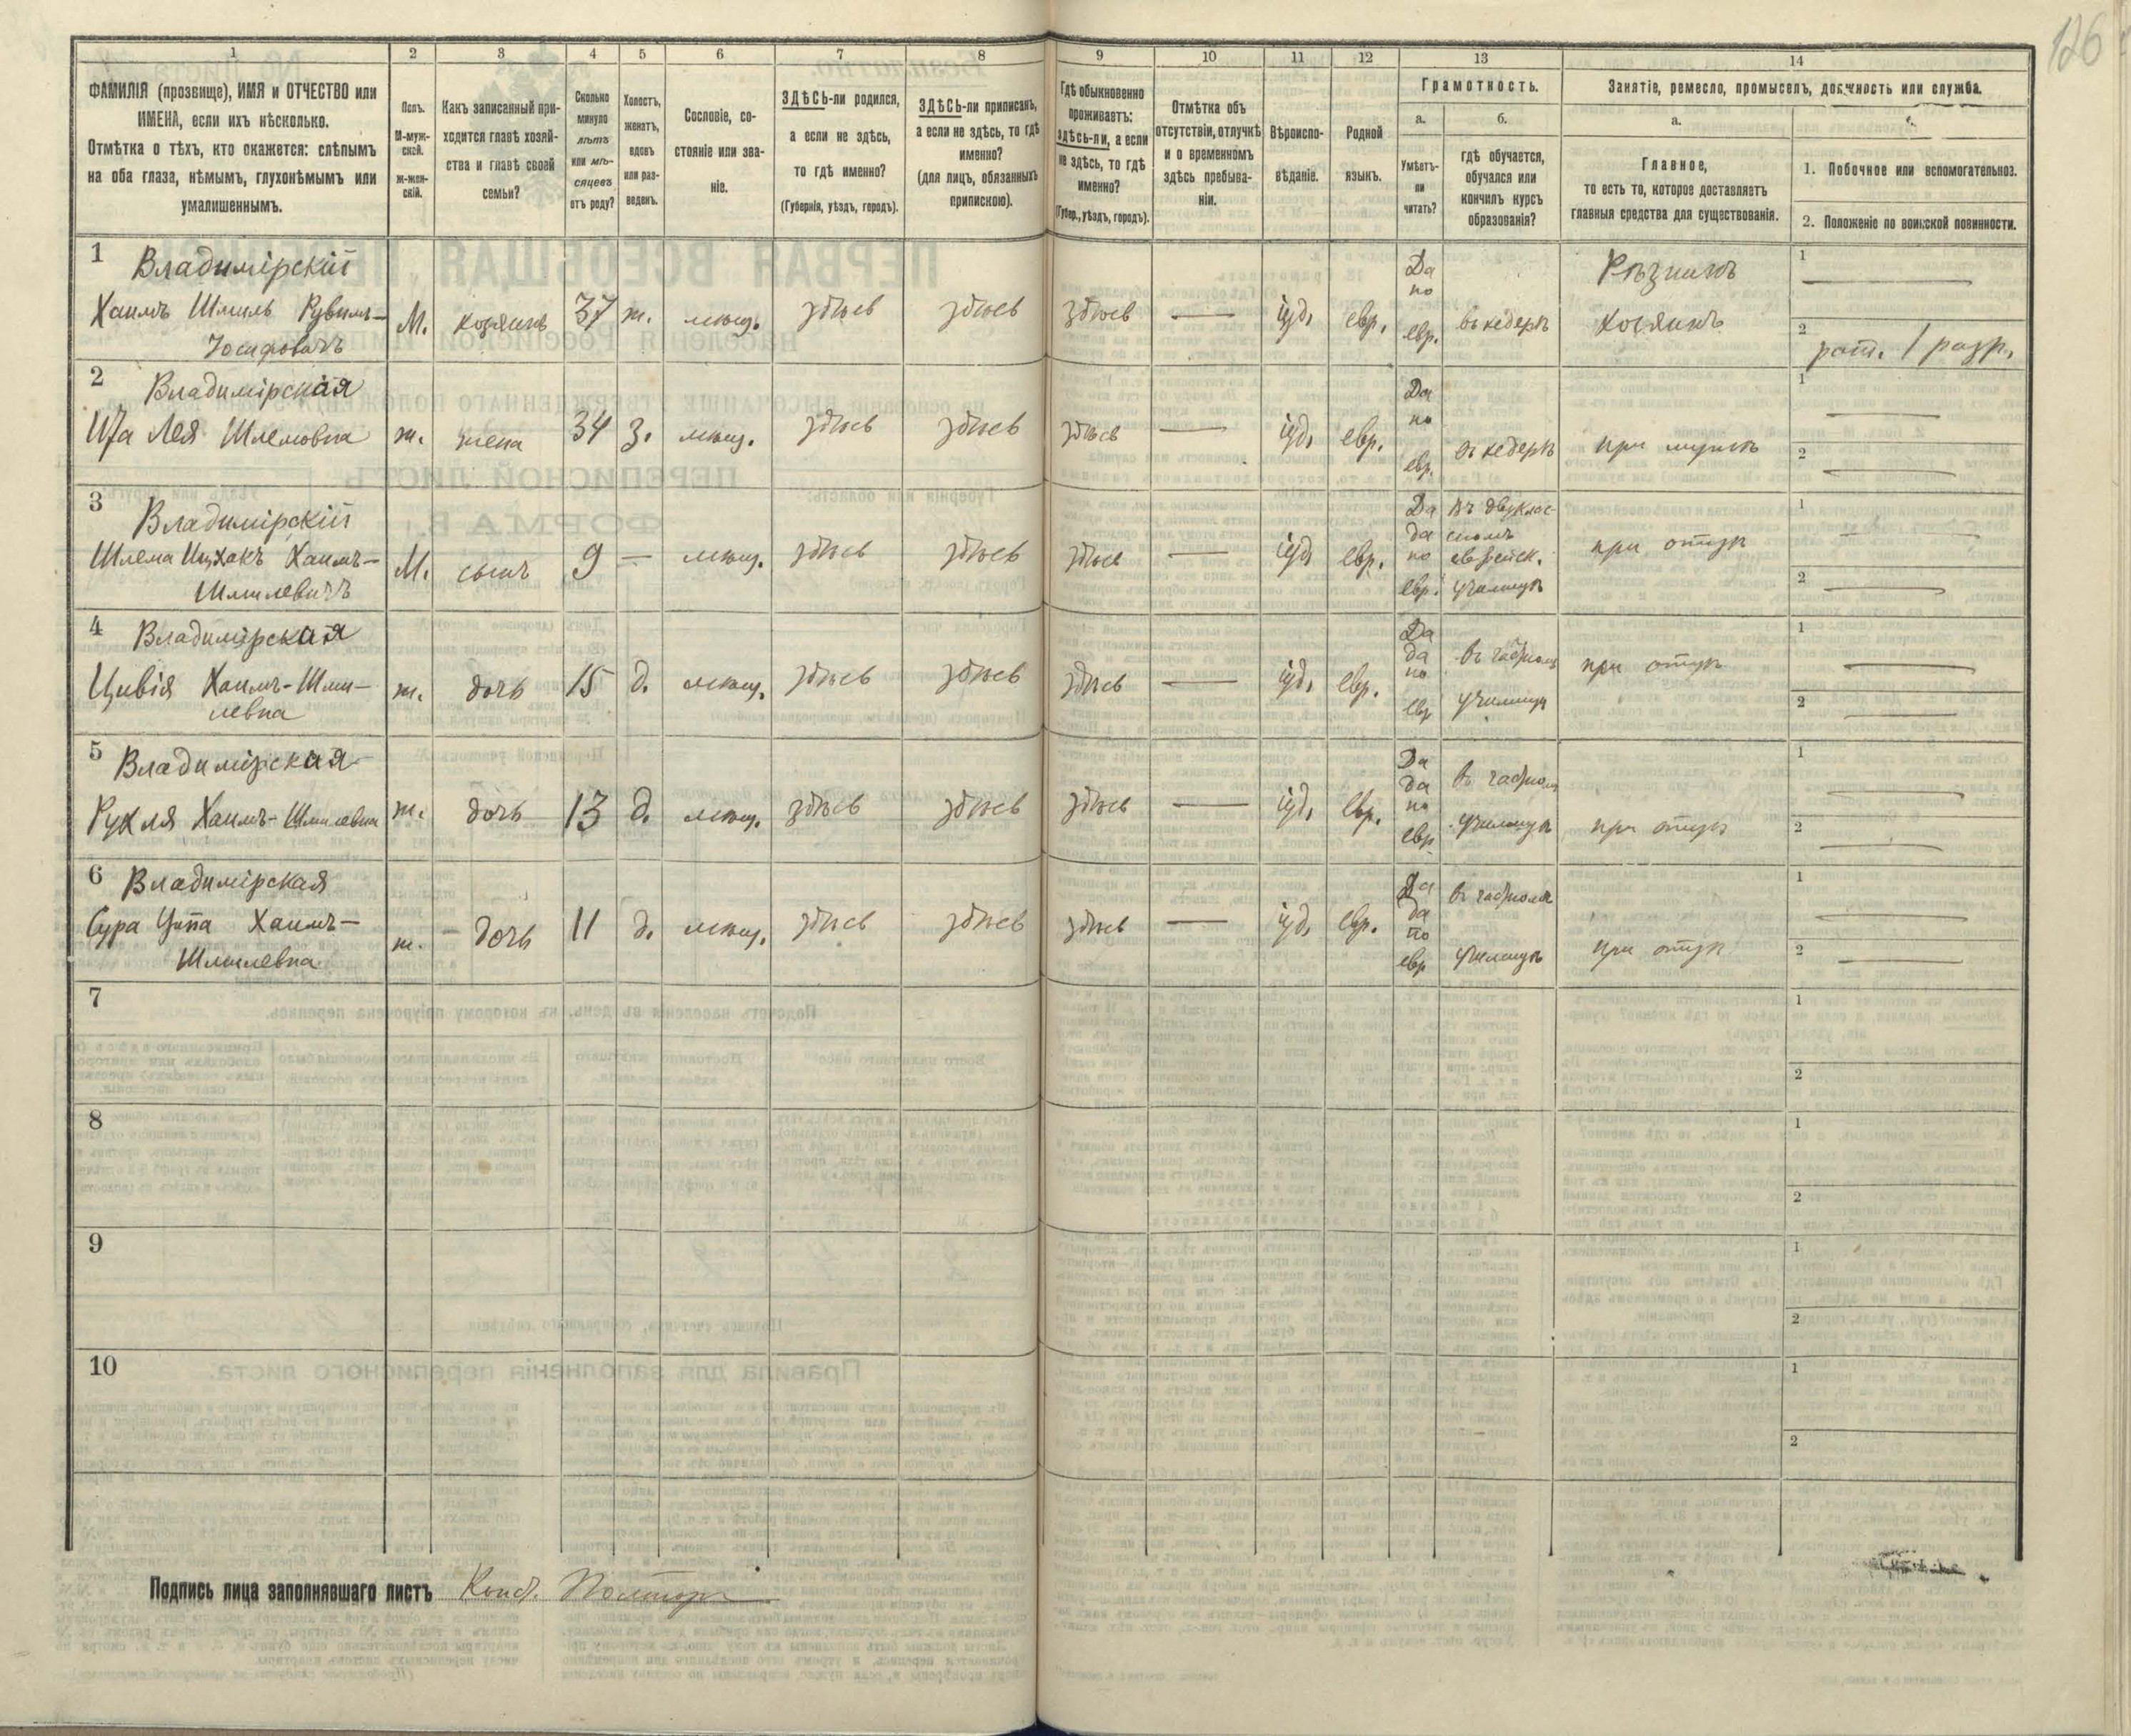 126
1 2 3 4 5 6 7 8 9 10 11 12 13 14
ФАМИЛІЯ (прозвище), ИМЯ и ОТЧЕСТВО или
ИМЕНА, если ихъ нѣсколько.
Отмѣтка о тѣхъ, кто окажется: слѣпымъ
на оба глаза, нѣмымъ, глухонѣмымъ или
умалишеннымъ.
Полъ.
М-муж-
ской.
ж-жен-
скій.
Какъ записанный при-
ходится главѣ хозяй-
ства и главѣ своей
семьи?
Сколько
минуло
лѣтъ
или мѣ-
сяцевъ
отъ роду?
Холостъ,
женатъ,
вдовъ
или раз-
веденъ.
Сословіе, со-
стояніе или зва-
ніе.
ЗДѢСЬ-ли родился,
а если не здѣсь,
то гдѣ именно?
(Губернія, уѣздъ, городъ).
ЗДѢСЬ-ли приписанъ,
а если не здѣсь, то гдѣ
именно?
(для лицъ, обязанныхъ
припискою).
Гдѣ обыкновенно
проживаетъ:
здѣсь-ли, а если
не здѣсь, то гдѣ
именно?
(Губер., уѣздъ, городъ).
Отмѣтка объ
отсутствіи, отлучкѣ
и о временномъ
здѣсь пребыва-
ніи.
Вѣроиспо-
вѣданіе.
Родной
языкъ.
Грамотность.
а.
Умѣетъ-
ли
читать?
б.
гдѣ обучается,
обучался или
кончилъ курсъ
образованія?
Занятіе, ремесло, промыселъ, должность или служба.
а.
Главное,
то есть то, которое доставляетъ
главныя средства для существованія.
1. Побочное или вспомогательное.
2. Положеніе по воинской повинности.
1 Владимірскій
Хаимъ Шмиль Рувимъ-
Іосифовичъ
М. хозяинъ 37 ж. мѣщ. здѣсь здѣсь здѣсь — іуд. евр.
Да
по
евр. въ хедерѣ
Рѣзникъ
хозяинъ
1 —
2 рат. 1 разр.
2 Владимірская
Ита Лея Шлемовна
ж. жена 34 з. мѣщ. здѣсь здѣсь здѣсь — іуд. евр.
Да
по
евр. въ хедерѣ
при мужѣ
1 —
2 —
3 Владимірскій
Шлема Ицхакъ Хаимъ-
Шмилевичъ
М. сынъ 9 — мѣщ. здѣсь здѣсь здѣсь — іуд. евр.
Да въ двуклас-
да сномъ
по еврейск.
евр. училищѣ
при отцѣ
1 —
2 —
4 Владимірская
Цивія Хаимъ-Шми-
левна
ж. дочь 15 д. мѣщ. здѣсь здѣсь здѣсь — іуд. евр.
Да
да въ
по
евр училищѣ
при отцѣ
1 —
2 —
5 Владимірская
Рухля Хаимъ-Шмилевна
ж. дочь 13 д. мѣщ. здѣсь здѣсь здѣсь — іуд. евр.
Да
да въ
по
евр. училищѣ
при отцѣ
1 —
2 —
6 Владимірская
Сура Ципа Хаимъ-
Шмилевна
ж. дочь 11 д. мѣщ. здѣсь здѣсь здѣсь — іуд. евр.
Да въ
да
по
евр училищѣ
при отцѣ
1 —
2 —
7
1
2
8
1
2
9
1
2
10
1
2
Подпись лица заполнявшаго листъ Конст.